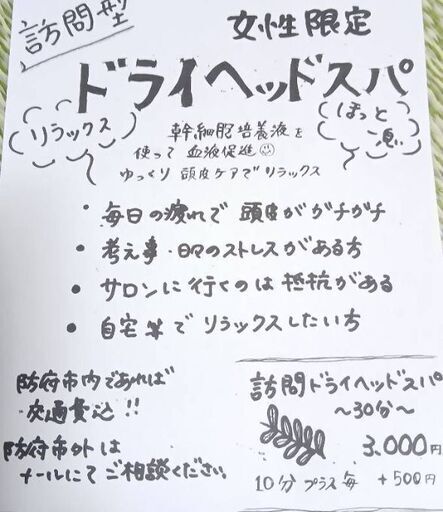 訪問型
女性限定
ドライヘッドスパ
リラックス
ほっと
一息
幹細胞培養液を
使って 血液促進
ゆっくり 頭皮ケアでリラックス
・毎日の疲れで 頭皮がガチガチ
・考え事・日々のストレスがある方
・サロンに行くのは抵抗がある
・自宅等でリラックスしたい方
防府市内であれば
交通費込!!
防府市外は
メールにてご相談ください
訪問ドライヘッドスパ
～30分～
3,000円
10分プラス毎 +500円